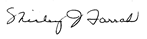 Shirley J Farrah